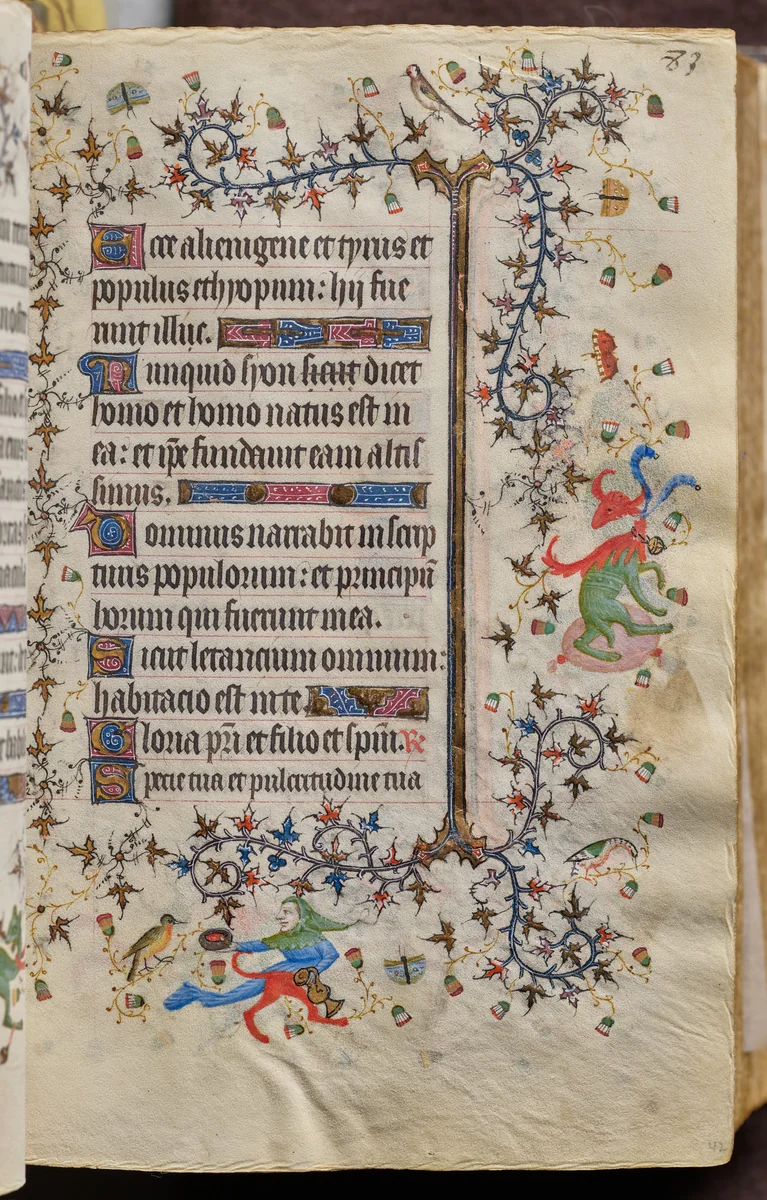 83
Ecce alienigene et tyrus et
populus ethyopum: hij fue
runt illuc.
Nunquid syon dicet
homo et homo natus est in
ea: et ip̄e fundauit eam altis
simus.
Dominus narrabit in scrip
turis populorum: et principū
horum qui fuerunt in ea.
Sicut letancium omnium:
habitacio est in te.
Gloria pr̄i et filio et spūi. R̄
Specie tua et pulcritudine tua
42